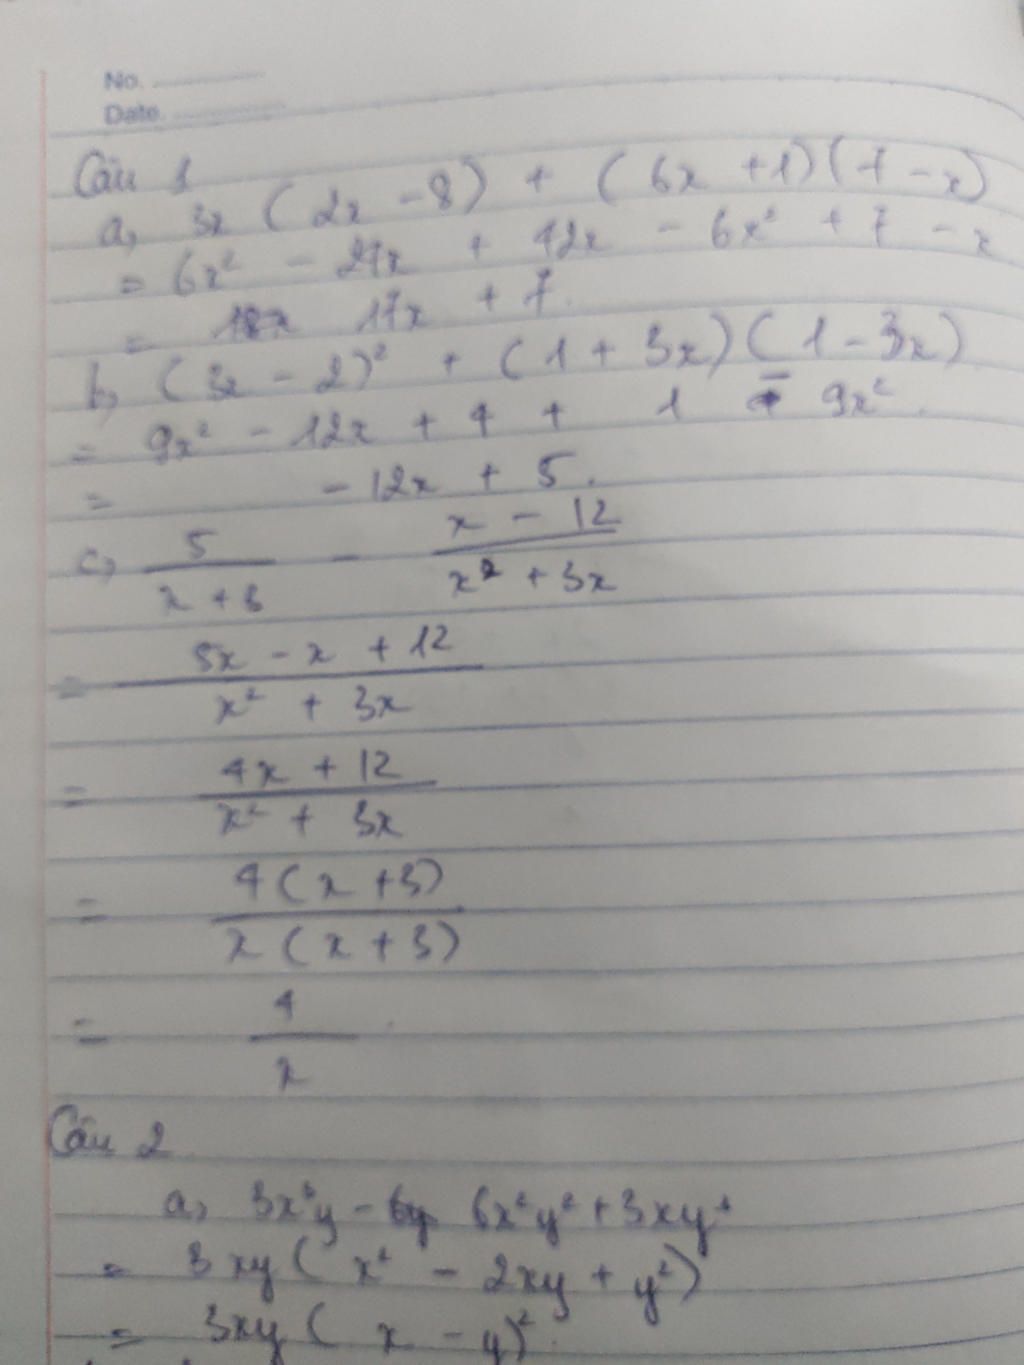 No.
Date.
Câu 1
a, 3x (2x - 8) + (6x + 1)(7 - x)
= 6x² - 24x + 42x - 6x² + 7 - x
= 17x + 7.
b, (3x - 2)² + (1 + 3x)(1 - 3x)
= 9x² - 12x + 4 + 1 - 9x².
= - 12x + 5.
c, 5/(x + 3) - (x - 12)/(x² + 3x)
= (5x - x + 12)/(x² + 3x)
= (4x + 12)/(x² + 3x)
= 4(x + 3)/x(x + 3)
= 4/x
Câu 2
a, 3x³y - 6x²y² + 3xy³
= 3xy(x² - 2xy + y²)
= 3xy(x - y)².